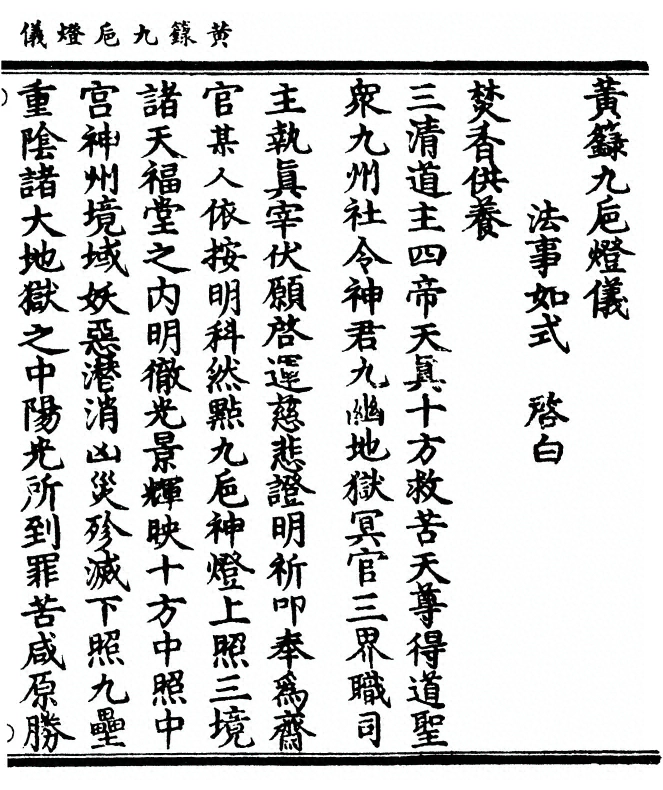 黃籙九巵燈儀
黃籙九巵燈儀
法事如式　啓白
焚香供養
三清道主四帝天真十方救苦天尊得道聖
衆九州社令神君九幽地獄冥官三界職司
主執眞宰伏願啓運慈悲證明祈叩奉爲齋
官某人依按明科然點九巵神燈上照三境
諸天福堂之内明徹光景輝映十方中照中
宫神州境域妖惡潜消凶災殄滅下照九壘
重陰諸大地獄之中陽光所到罪苦咸原勝